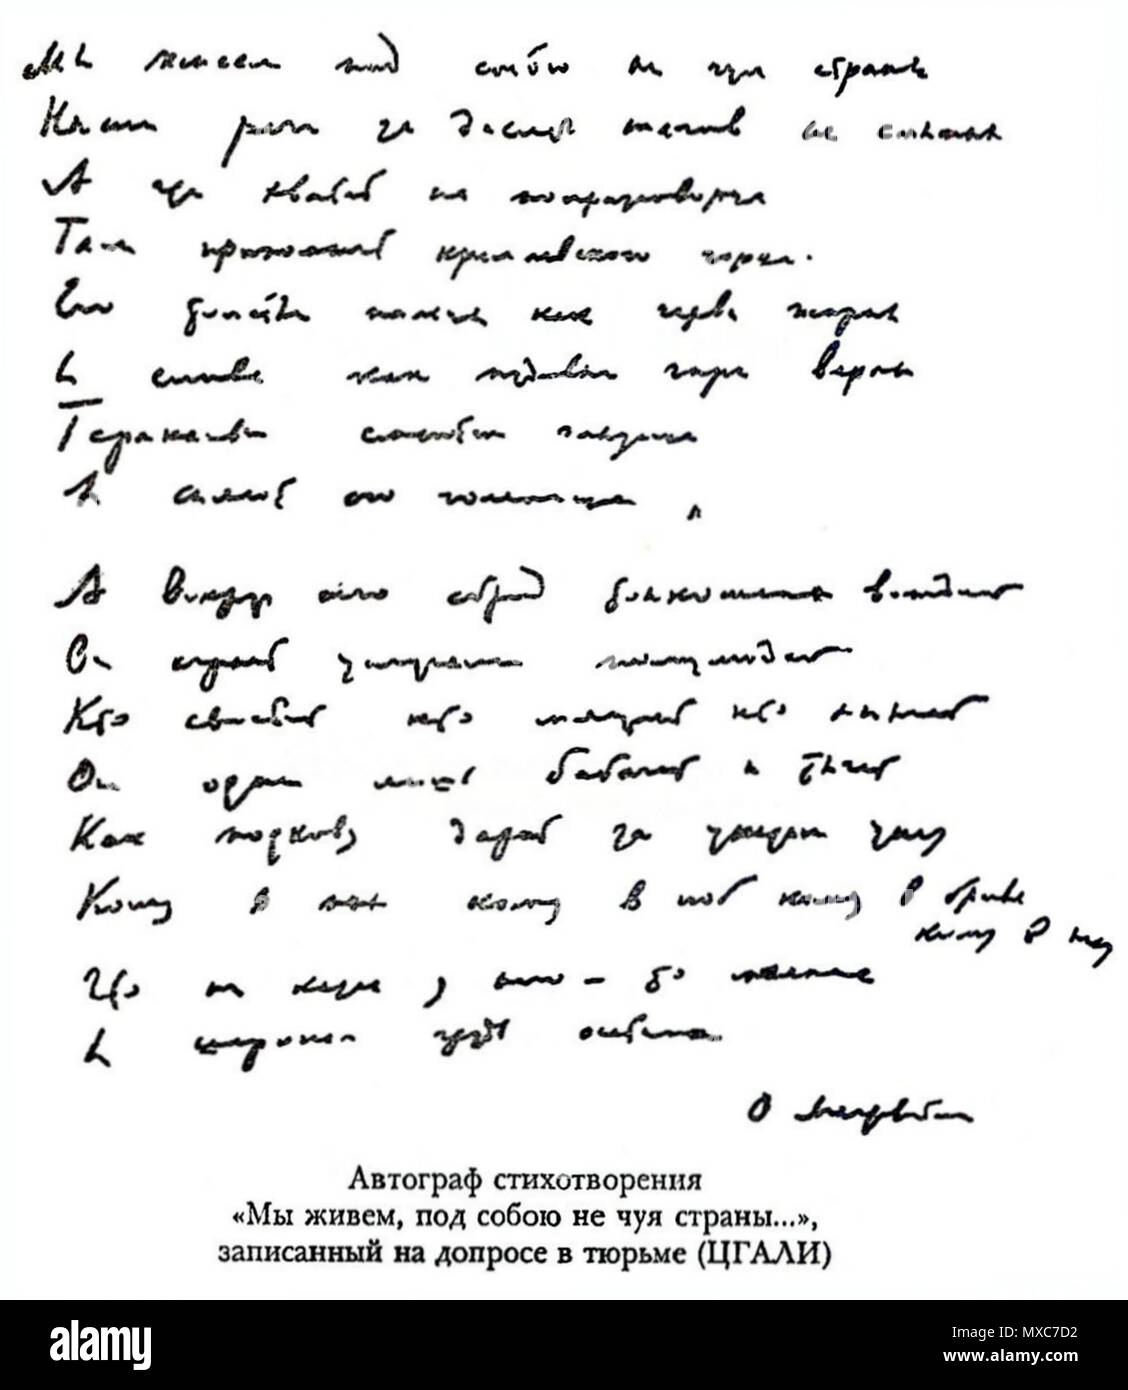 Мы живем под собою не чуя страны
Наши речи за десять шагов не слышны
А где хватит на полразговорца
Там припомнят кремлевского горца.
Его толстые пальцы как черви жирны
И слова как пудовые гири верны
Тараканьи смеются глазища
И сияют его голенища
А вокруг его сброд тонкошеих вождей
Он играет услугами полулюдей
Кто свистит кто мяучит кто хнычет
Он один лишь бабачит и тычет
Как подкову дарит за указом указ
Кому в пах кому в лоб кому в бровь
кому в глаз
Что ни казнь у него – то малина
И широкая грудь осетина
О Мандельштам
Автограф стихотворения
«Мы живем, под собою не чуя страны...»,
записанный на допросе в тюрьме (ЦГАЛИ)
alamy
Image ID: MXC7D2
www.alamy.com